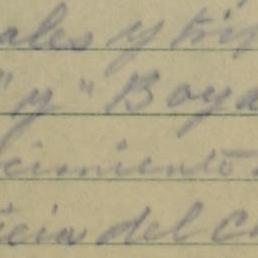 ales y trip
" y " Boyd
cimiento
icia del C